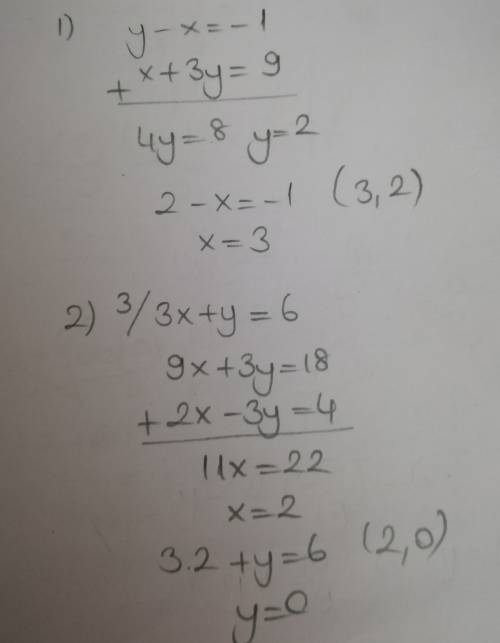 1) y-x=-1
+ x+3y=9
4y=8 y=2
2-x=-1 (3,2)
x=3
2) 3/3x+y=6
9x+3y=18
+2x-3y=4
11x=22
x=2
3.2+y=6 (2,0)
y=0